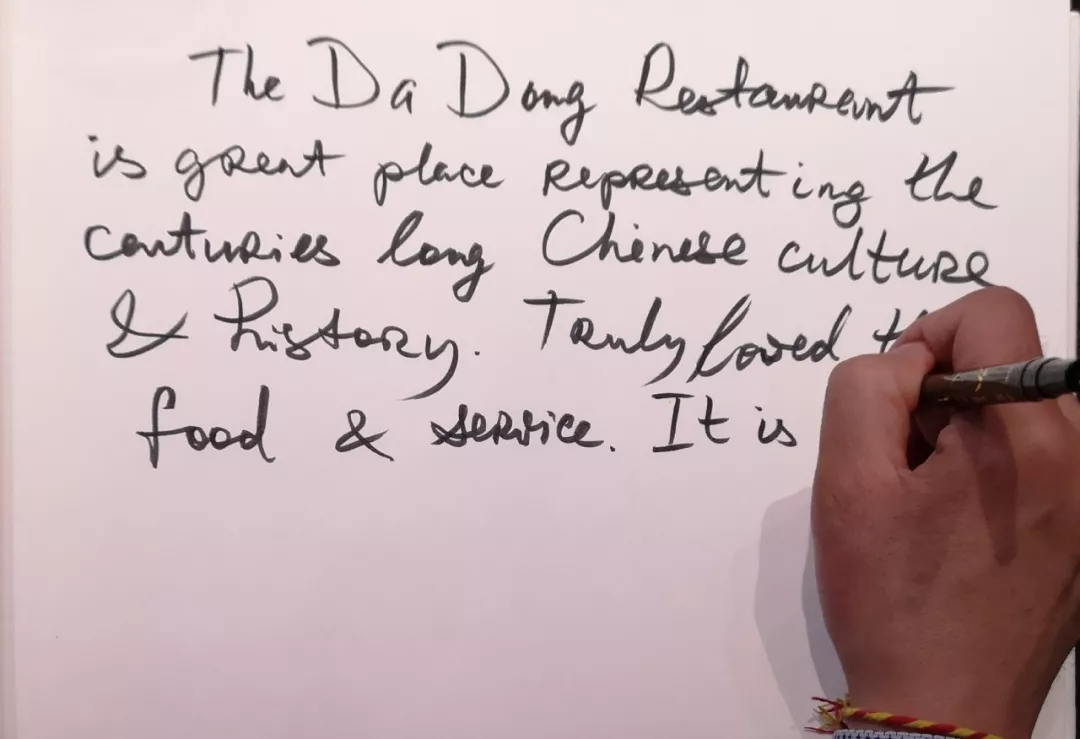 The Da Dong Restaurant
is great place representing the
centuries long Chinese culture
& history. Truly loved
food & service. It is